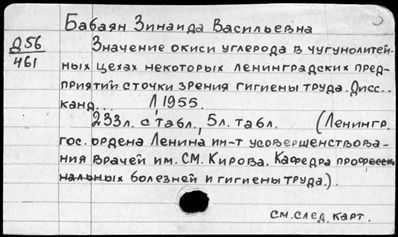 Бабаян Зинаида Васильевна
Д56
461
Значение окиси углерода в чугунолитей-
ных цехах некоторых Ленинградских пред-
приятий с точки зрения гигиены труда. Дисс..
канд... Л 1955.
233л. с табл., 5л. табл. (Ленингр.
гос. ордена Ленина ин-т усовершенствова-
ния врачей им. С.М. Кирова. Кафедра професси-
нальных болезней и гигиены труда.).
см.след.карт.